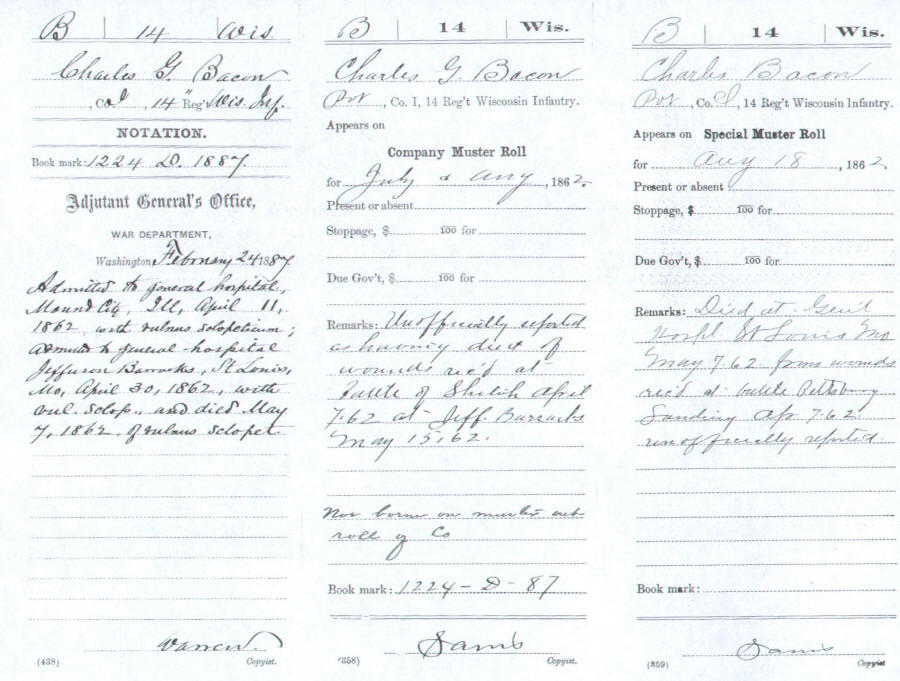 B | 14 | Wis.
Charles G. Bacon
, Co I, 14" Reg't Wis. Inf.
NOTATION.
Book mark: 1224 D. 1887.
Adjutant General's Office,
WAR DEPARTMENT,
Washington, February 24 1887
Admitted to general hospital,
Mound City, Ill, April 11,
1862, with vulnus sclopeticum;
admitted to general hospital
Jefferson Barracks, St Louis,
Mo, April 30, 1862, with
vul. sclop., and died May
7, 1862, of vulnus sclopet.
Copyist.
(438)
B | 14 | Wis.
Charles G. Bacon
Pvt, Co. I, 14 Reg't Wisconsin Infantry.
Appears on
Company Muster Roll
for July & Aug, 1862.
Present or absent
Stoppage, $ 100 for
Due Gov't, $ 100 for
Remarks: Unofficially reported
as having died of
wounds rec'd at
battle of Shiloh April
7.62 at Jeff. Barracks
May 15, 62.
Not borne on muster out
roll of Co
Book mark: 1224 - D - 87
Copyist.
(358)
B | 14 | Wis.
Charles Bacon
Pvt, Co. I, 14 Reg't Wisconsin Infantry.
Appears on Special Muster Roll
for Aug 18, 1862.
Present or absent
Stoppage, $ 100 for
Due Gov't, $ 100 for
Remarks: Died at Gen'l
Hosp'l St Louis Mo
May 7.62 from wounds
rec'd at battle Pittsburg
Landing Ap. 7.62.
unofficially reported.
Book mark:
Copyist
(359)